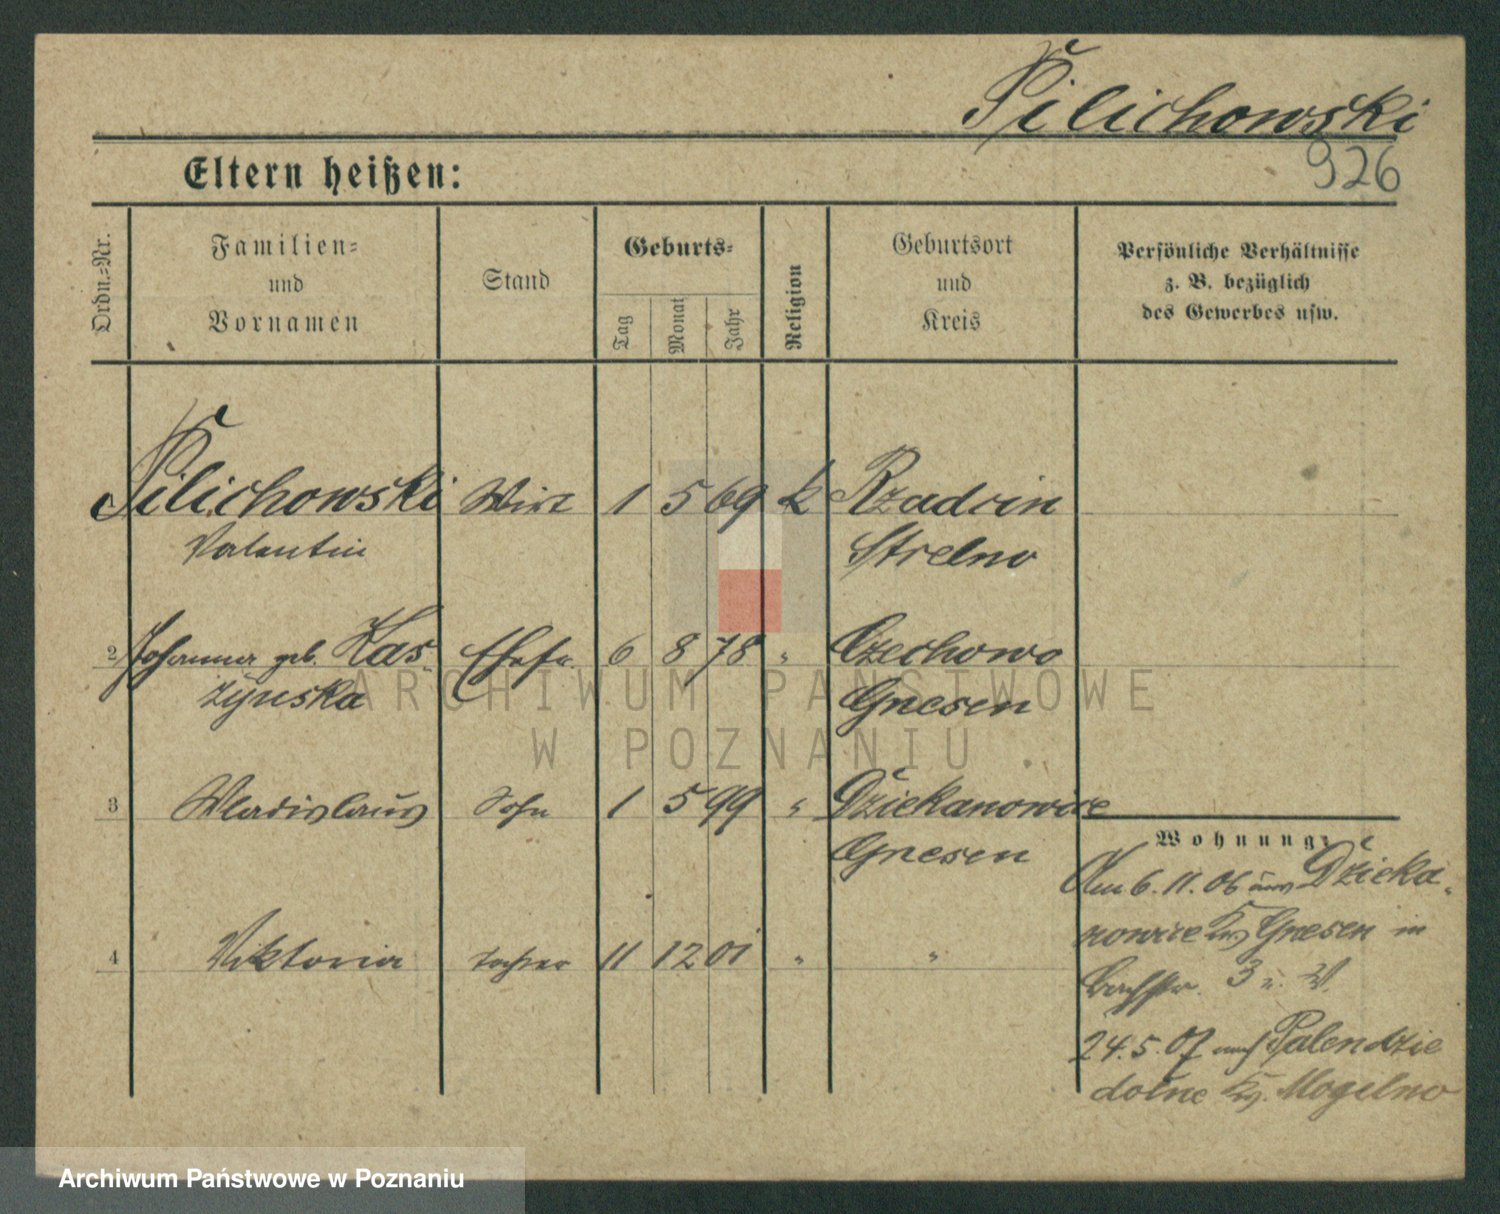 Pilichowski
926
Eltern heißen:
Ordn.-Nr.
Familien-
und
Vornamen
Stand
Geburts-
Tag
Monat
Jahr
Religion
Geburtsort
und
Kreis
Persönliche Verhältnisse
z. B. bezüglich
des Gewerbes usw.
Pilichowski Wirt 1 5 69 k Rzadcin
Valentin Strelno
2 Johanna geb. Kas- Ehefr. 6 8 78 " Czechowo
zynska Gnesen
3 Wladislaus Sohn 1 5 99 " Dziekanowice
Gnesen
Wohnung:
Am 6. 11. 06 aus Dzieka-
nowice Krs Gnesen in
4 Viktoria Tochter 11 12 01 " "
Bachstr. 3 u. W.
24.5.07 nach Palendzie
dolne Krs. Mogilno
ARCHIWUM PAŃSTWOWE
W POZNANIU .
Archiwum Państwowe w Poznaniu